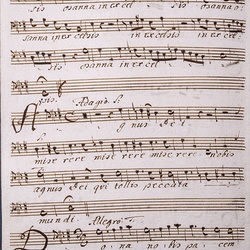 sis osanna in excel sis osanna
sanna in excelsis in excelsis in excel
sis osanna in excel
sis.
Adagio. S.
Agnus Dei
mise rere mise rere mise rere nobis
agnus Dei qui tollis peccata
mundi. Allegro.
Dona nobis pa cem